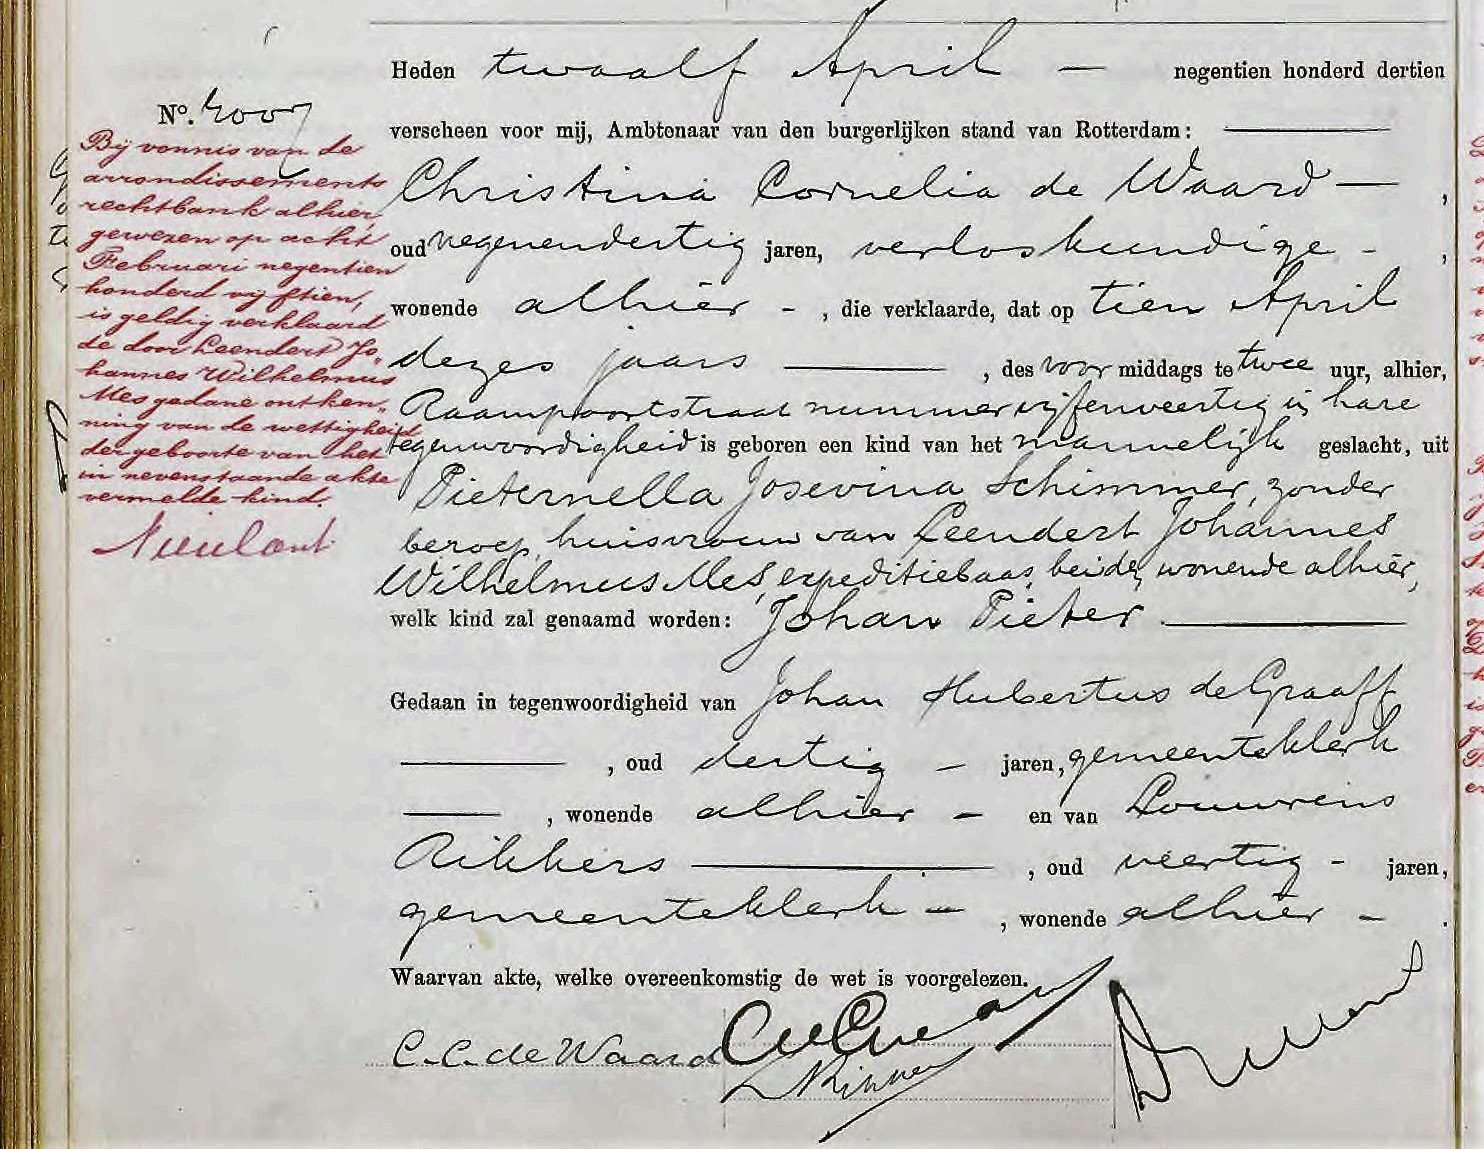 Heden twaalf April — negentien honderd dertien
verscheen voor mij, Ambtenaar van den burgerlijken stand van Rotterdam:
Christina Cornelia de Waard — ,
oud negenendertig jaren, verloskundige - ,
wonende alhier - , die verklaarde, dat op tien April
dezes jaars — , des voor middags te twee uur, alhier,
Raampoortstraat nummer vijfenveertig in hare
tegenwoordigheid is geboren een kind van het mannelijk geslacht, uit
Pieternella Josevina Schimmer, zonder
beroep, huisvrouw van Leendert Johannes
Wilhelmus Mes, expeditiebaas, beiden wonende alhier,
welk kind zal genaamd worden: Johan Pieter —
Gedaan in tegenwoordigheid van Johan Hubertus de Graaff
— , oud dertig — jaren, gemeenteklerk
— , wonende alhier — en van Louwrens
Rikkers — , oud veertig - jaren,
gemeenteklerk — , wonende alhier — .
Waarvan akte, welke overeenkomstig de wet is voorgelezen.
C. C. de Waard
No.
Bij vonnis van de
arrondissements
rechtbank alhier,
gewezen op acht
Februari negentien
honderd vijftien,
is geldig verklaard
de door Leendert Jo„
hannes Wilhelmus
Mes gedane ontken„
ning van de wettigheid
der geboorte van het
in nevenstaande akte
vermelde kind.